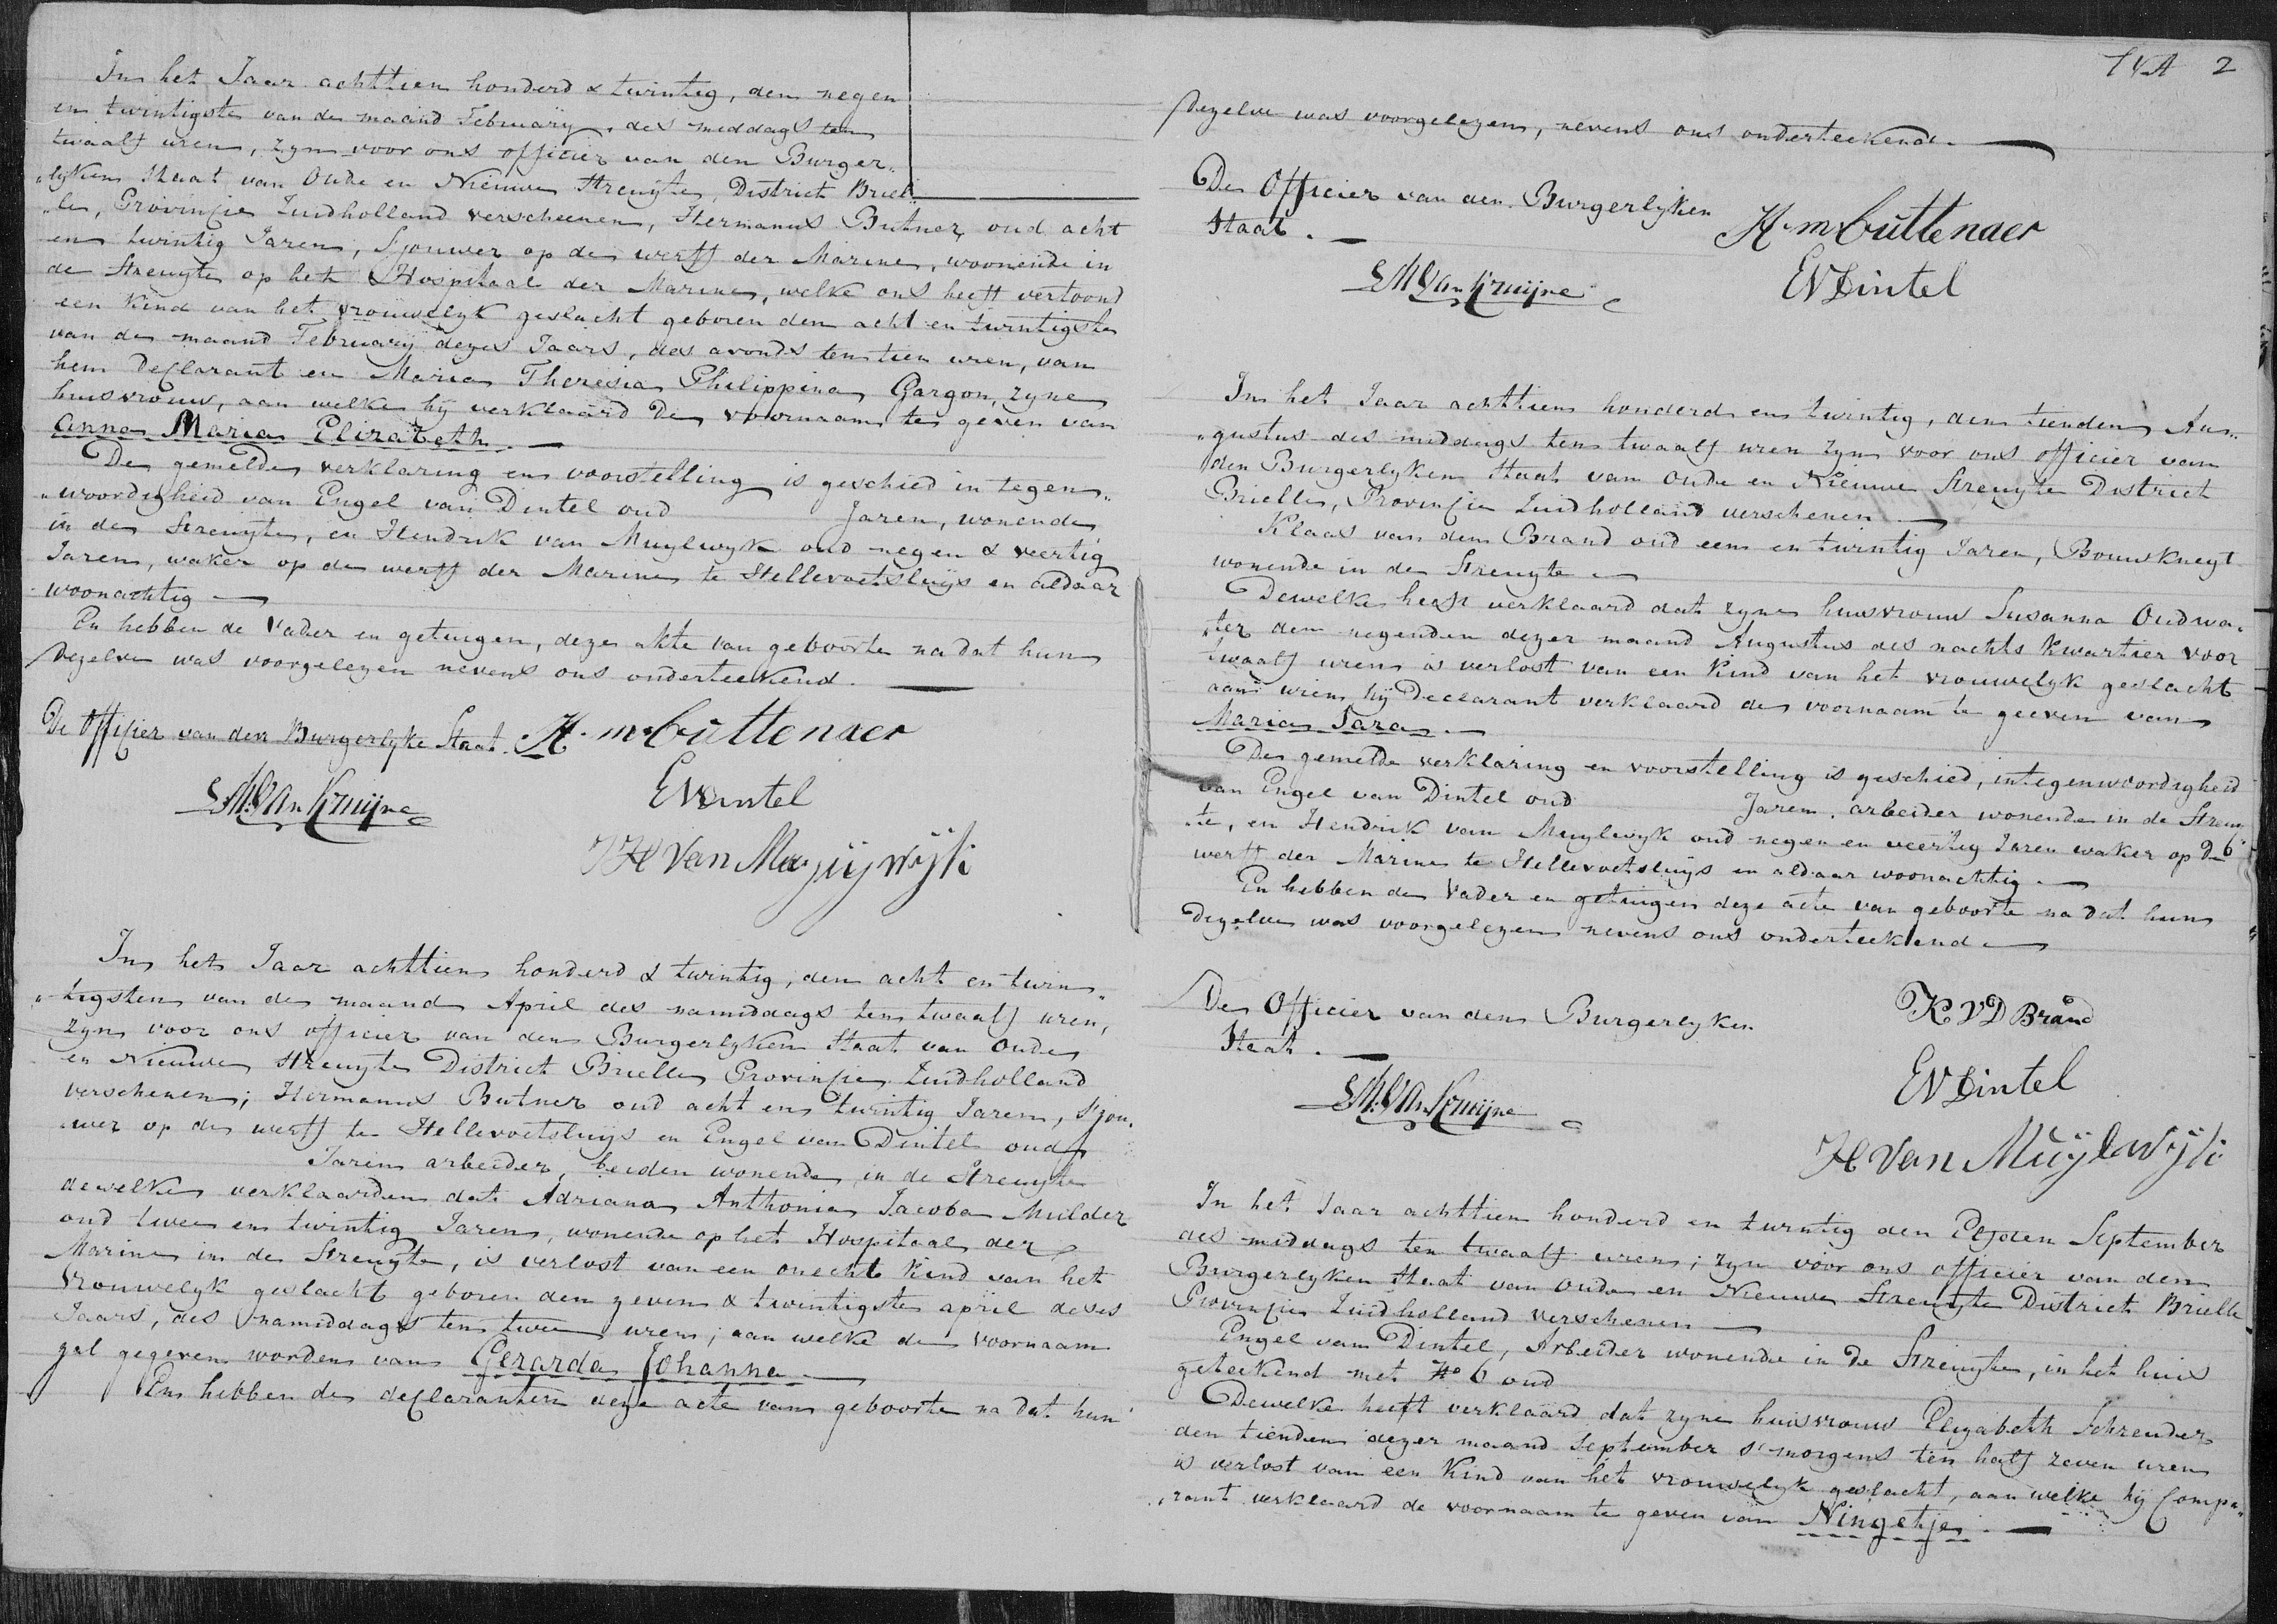 In het Jaar achttien honderd & twintig, den negen
en twintigste van de maand February, des middags ten
twaalf uren, zyn voor ons officier van den Burger„
„lyken Staat van Oude en Nieuwe Strenyte, District Briel„
„le, Provincie Zuidholland verscheenen, Hermanus Butner, oud acht
en twintig Jaren, Sjouwer op de werff der Marine, woonende in
de Strenyte op het Hospitaal der Marine, welke ons heeft vertoond
een Kind van het vrouwelyk geslacht geboren den acht en twintigste
van de maand February dezes Jaars, des avonds ten tien uren, van
hem Declarant en Maria Theresia Philippina Gargon, zyne
huisvrouw, aan welke hy verklaard De voornaam te geven van
Anna Maria Elizabeth. —
De gemelde verklaring en voorstelling is geschied in tegen„
„woordigheid van Engel van Dintel oud Jaren, wonende
in de Strenyte, en Hendrik van Muylwyk oud negen & veertig
Jaren, waker op de werff der Marine te Hellevoetsluys en aldaar
woonachtig —
En hebben de Vader en getuigen, deze akte van geboorte na dat hun
dezelve was voorgelezen nevens ons onderteekend. —
De Officier van den Burgerlyke Staat. H. m Buttenaer
EVDintel
H Van Muylwyk
In het Jaar achttien honderd & twintig, den acht en twin„
„tigsten van de maand April des namiddags ten twaalf uren,
zyn voor ons officier van den Burgerlyken Staat van Oude
en Nieuwe Strenyte District Brielle Provincie Zuidholland
verschenen; Hermanus Butner oud acht en twintig Jaren, Sjou„
„wer op de werff te Hellevoetsluys en Engel van Dintel oud
Jaren arbeider, beiden wonende in de Strenyte
dewelke verklaarden dat Adriana Anthonia Jacoba Mulder
oud twee en twintig Jaren, wonende op het Hospitaal der
Marine in de Strenyte, is verlost van een onecht kind van het
Vrouwelyk geslacht geboren den zeven & twintigste april deses
Jaars, des namiddags ten twee uren; aan welke de voornaam
zal gegeven worden van Gerarda Johanna —
En hebben de declaranten deze acte van geboorte na dat hun
14A 2
dezelve was voorgelezen, nevens ons onderteekend. —
De Officier van den Burgerlyken
Staat. —
H. m Buttenaer
EVDintel
In het Jaar achttien honderd en twintig, den tienden Au„
„gustus des middags ten twaalf uren zyn voor ons officier van
den Burgerlyken Staat van Oude en Nieuwe Strenyte District
Brielle, Provincie Zuidholland verschenen —
Klaas van den Brand oud een en twintig Jaren, Bouwkneyt
wonende in de Strenyte —
Dewelke heeft verklaard dat zyne huisvrouw Susanna Oudwa„
„ter den negenden dezer maand Augustus des nachts kwartier voor
twaalf uren is verlost van een Kind van het vrouwelyk geslacht
aan wien hy Declarant verklaard de voornaam te geeven van
Maria Sara. —
De gemelde verklaring en voorstelling is geschied, in tegenwoordigheid
van Engel van Dintel oud Jaren, arbeider wonende in de Streny
„te, en Hendrik van Muylwyk oud negen en veertig Jaren waker op De
werff der Marine te Hellevoetsluys en aldaar woonachtig. —
En hebben de Vader en getuigen deze acte van geboorte na dat hun
dezelve was voorgelezen nevens ons onderteekend —
De Officier van den Burgerlyken
Staat. —
K VD Brand
EVDintel
H Van Muylwyk
In het Jaar achttien honderd en twintig den Elfden September
des middags ten twaalf uren; zyn voor ons officier van den
Burgerlyken Staat van Oude en Nieuwe Strenyte District Brielle
Provincie Zuidholland verschenen —
Engel van Dintel, Arbeider wonende in de Strenyte, in het huis
geteekend met No 6 oud
Dewelke heeft verklaard dat zyne huisvrouw Elizabeth Schreuder
den tienden dezer maand September s'morgens ten half zeven uren
is verlost van een Kind van het vrouwelyk geslacht, aan welke hy Compa„
„rant verklaard de voornaam te geven van Ningetje. —